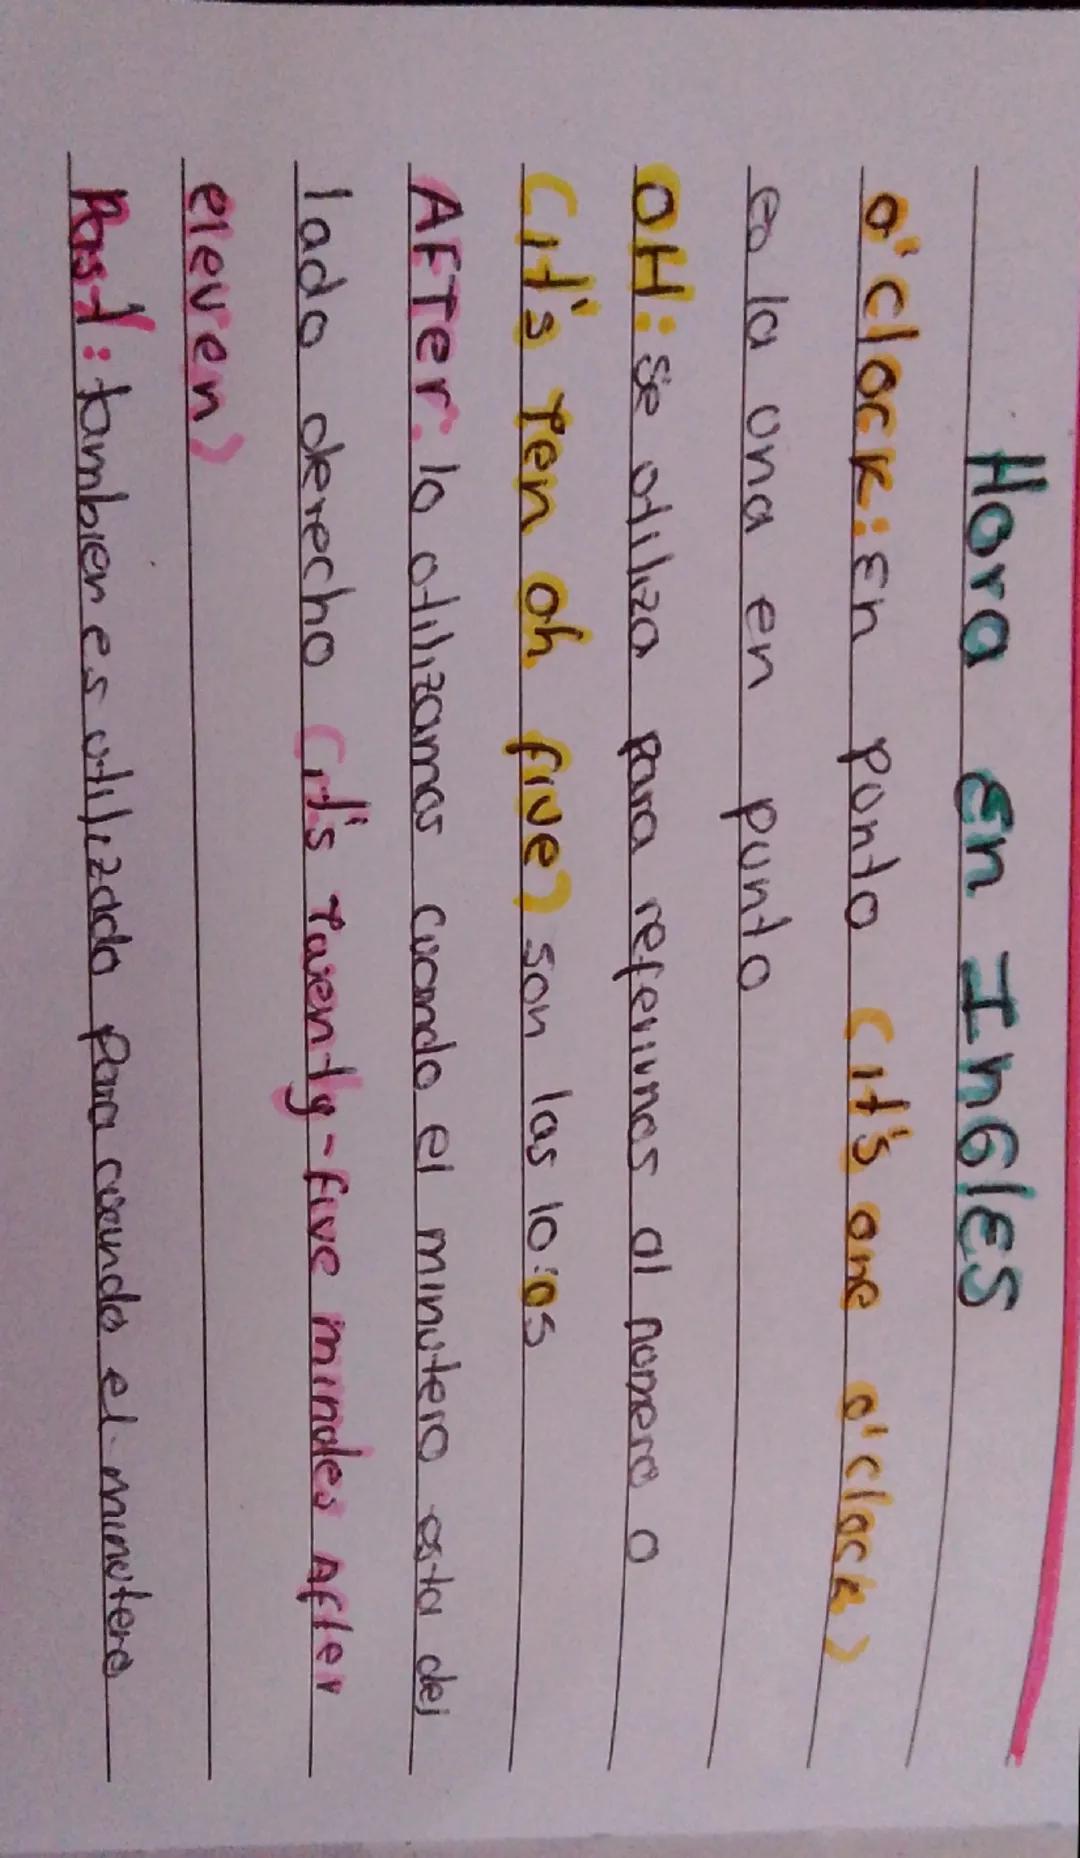 Hora En InGlES
o'clock: En punto (it's one o'clock)
es la una en punto
OH: se utiliza para referirnos al numero 0
(it's Ten oh five) son las 10:05
AFTer: lo utilizamos cuando el minutero esta del
lado derecho (it's Twenty-five minutes After
eleven)
Past: tambien es utilizado para cuando el minutero